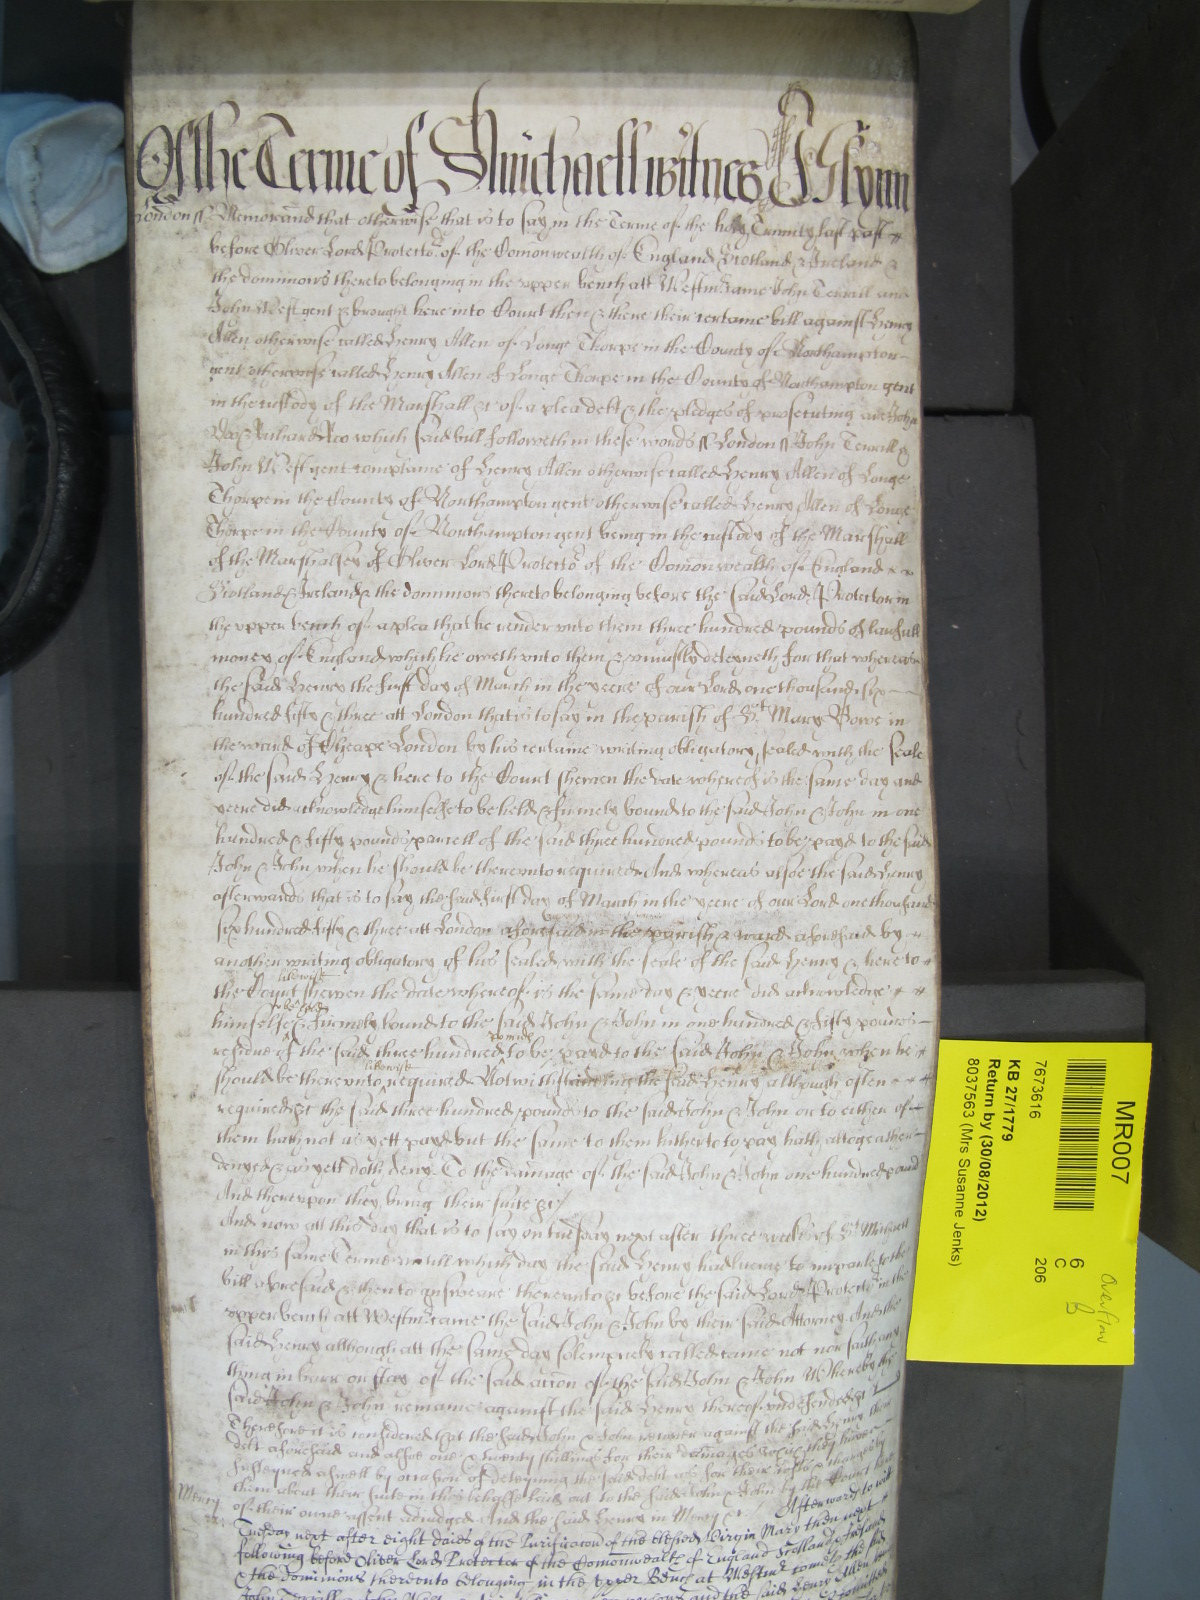 Of the Terme of St Michaell witnes J Glynn
London ss Memorand that otherwise that is to say in the Terme of the holy Trinity last past
before Oliver Lord Protector of the Comonwealth of England Scotland & Ireland &
the dominions thereto belonging in the upper bench att Westmr came John Terrill and
John West gent & brought here into Court then & there their certaine bill against Henry
Allen otherwise called Henry Allen of Longe Thorpe in the County of Northampton
gent otherwise called Henry Allen of Longe Thorpe in the County of Northampton gent
in the custody of the Marshall &c of a plea debt & the pledges of prosecuting are John
Doo & Richard Roo which said bill followeth in these words ss London ss John Terrill &
John West gent complaine of Henry Allen otherwise called Henry Allen of Longe
Thorpe in the County of Northampton gent otherwise called Henry Allen of Longe
Thorpe in the County of Northampton gent being in the custody of the Marshall
of the Marshalsey of Oliver Lord Protector of the Comonwealth of England
Scotland & Ireland & the dominions thereto belonging before the said Lord Protector in
the upper bench of a plea that he render unto them three hundred pounds of lawfull
money of England which he oweth unto them & uniustly deteyneth for that whereas
the said Henry the first day of March in the yeere of our Lord one thousand six
hundred fifty & three att London that is to say in the parish of St Mary Bowe in
the ward of Cheape London by his certaine writing obligatory sealed with the seale
of the said Henry & here to the Court shewen the date whereof is the same day and
yeere did acknowledge himselfe to be held & firmely bound to the said John & John in one
hundred & fifty pounds parcell of the said three hundred pounds to be payd to the said
John & John when he should be thereunto required And whereas alsoe the said Henry
afterwards that is to say the said first day of March in the yeere of our Lord one thousand
six hundred fifty & three att London aforesaid in the parish & ward aforesaid by
another writing obligatory of his sealed with the seale of the said Henry & here to
the Court likewise shewen the date whereof is the same day & yeere did acknowledge
himselfe to be held & firmely bound to the said John & John in one hundred & fifty pounds
residue of the said three hundred pounds to be payd to the said John & John when he
should be thereunto likewise required Notwithstanding the said Henry although often
required &c the said three hundred pounds to the said John & John or to either of
them hath not as yett payd but the same to them hitherto to pay hath altogeather
denyed & as yett doth deny To the damage of the said John & John one hundred pound
And thereupon they bring their suite &c
And now att this day that is to say on tuesday next after three weekes of St Michaell
in this same Terme untill which day the said Henry had licence to imparle to the
bill aforesaid & then to answeare thereunto &c before the said Lord Protector in the
upper bench att Westmr came the said John & John by their said Attorney And the
said Henry although att the same day solempnely called came not nor saith any
thing in barr or stay of the said action of the said John & John Whereby the
said John & John remaine against the said Henry thereof undefended &c
Therefore it is considered that the said John & John recover against the said Henry their
debt aforesaid and alsoe one & twenty shillings for their damages which they have
susteyned aswell by occasion of deteyning the said debt as for their costs & charges by
them about their suite in this behalfe laid out to the said John & John by the Court here
Mercy
of their owne assent adiudged And the said Henry in Mercy &c Afterwards to witt
Tuesday next after eight daies of the Purificacon of the blessed Virgin Mary then next
following before Oliver Lord Protector of the Comonwealth of England Scotland & Ireland
& the dominions thereunto belonging in the Upper Bench at Westmr cometh the said
MR007
7673616
6
C
206
KB 27/1779
Return by (30/08/2012)
8037563 (Mrs Susanne Jenks)
Overflow
B